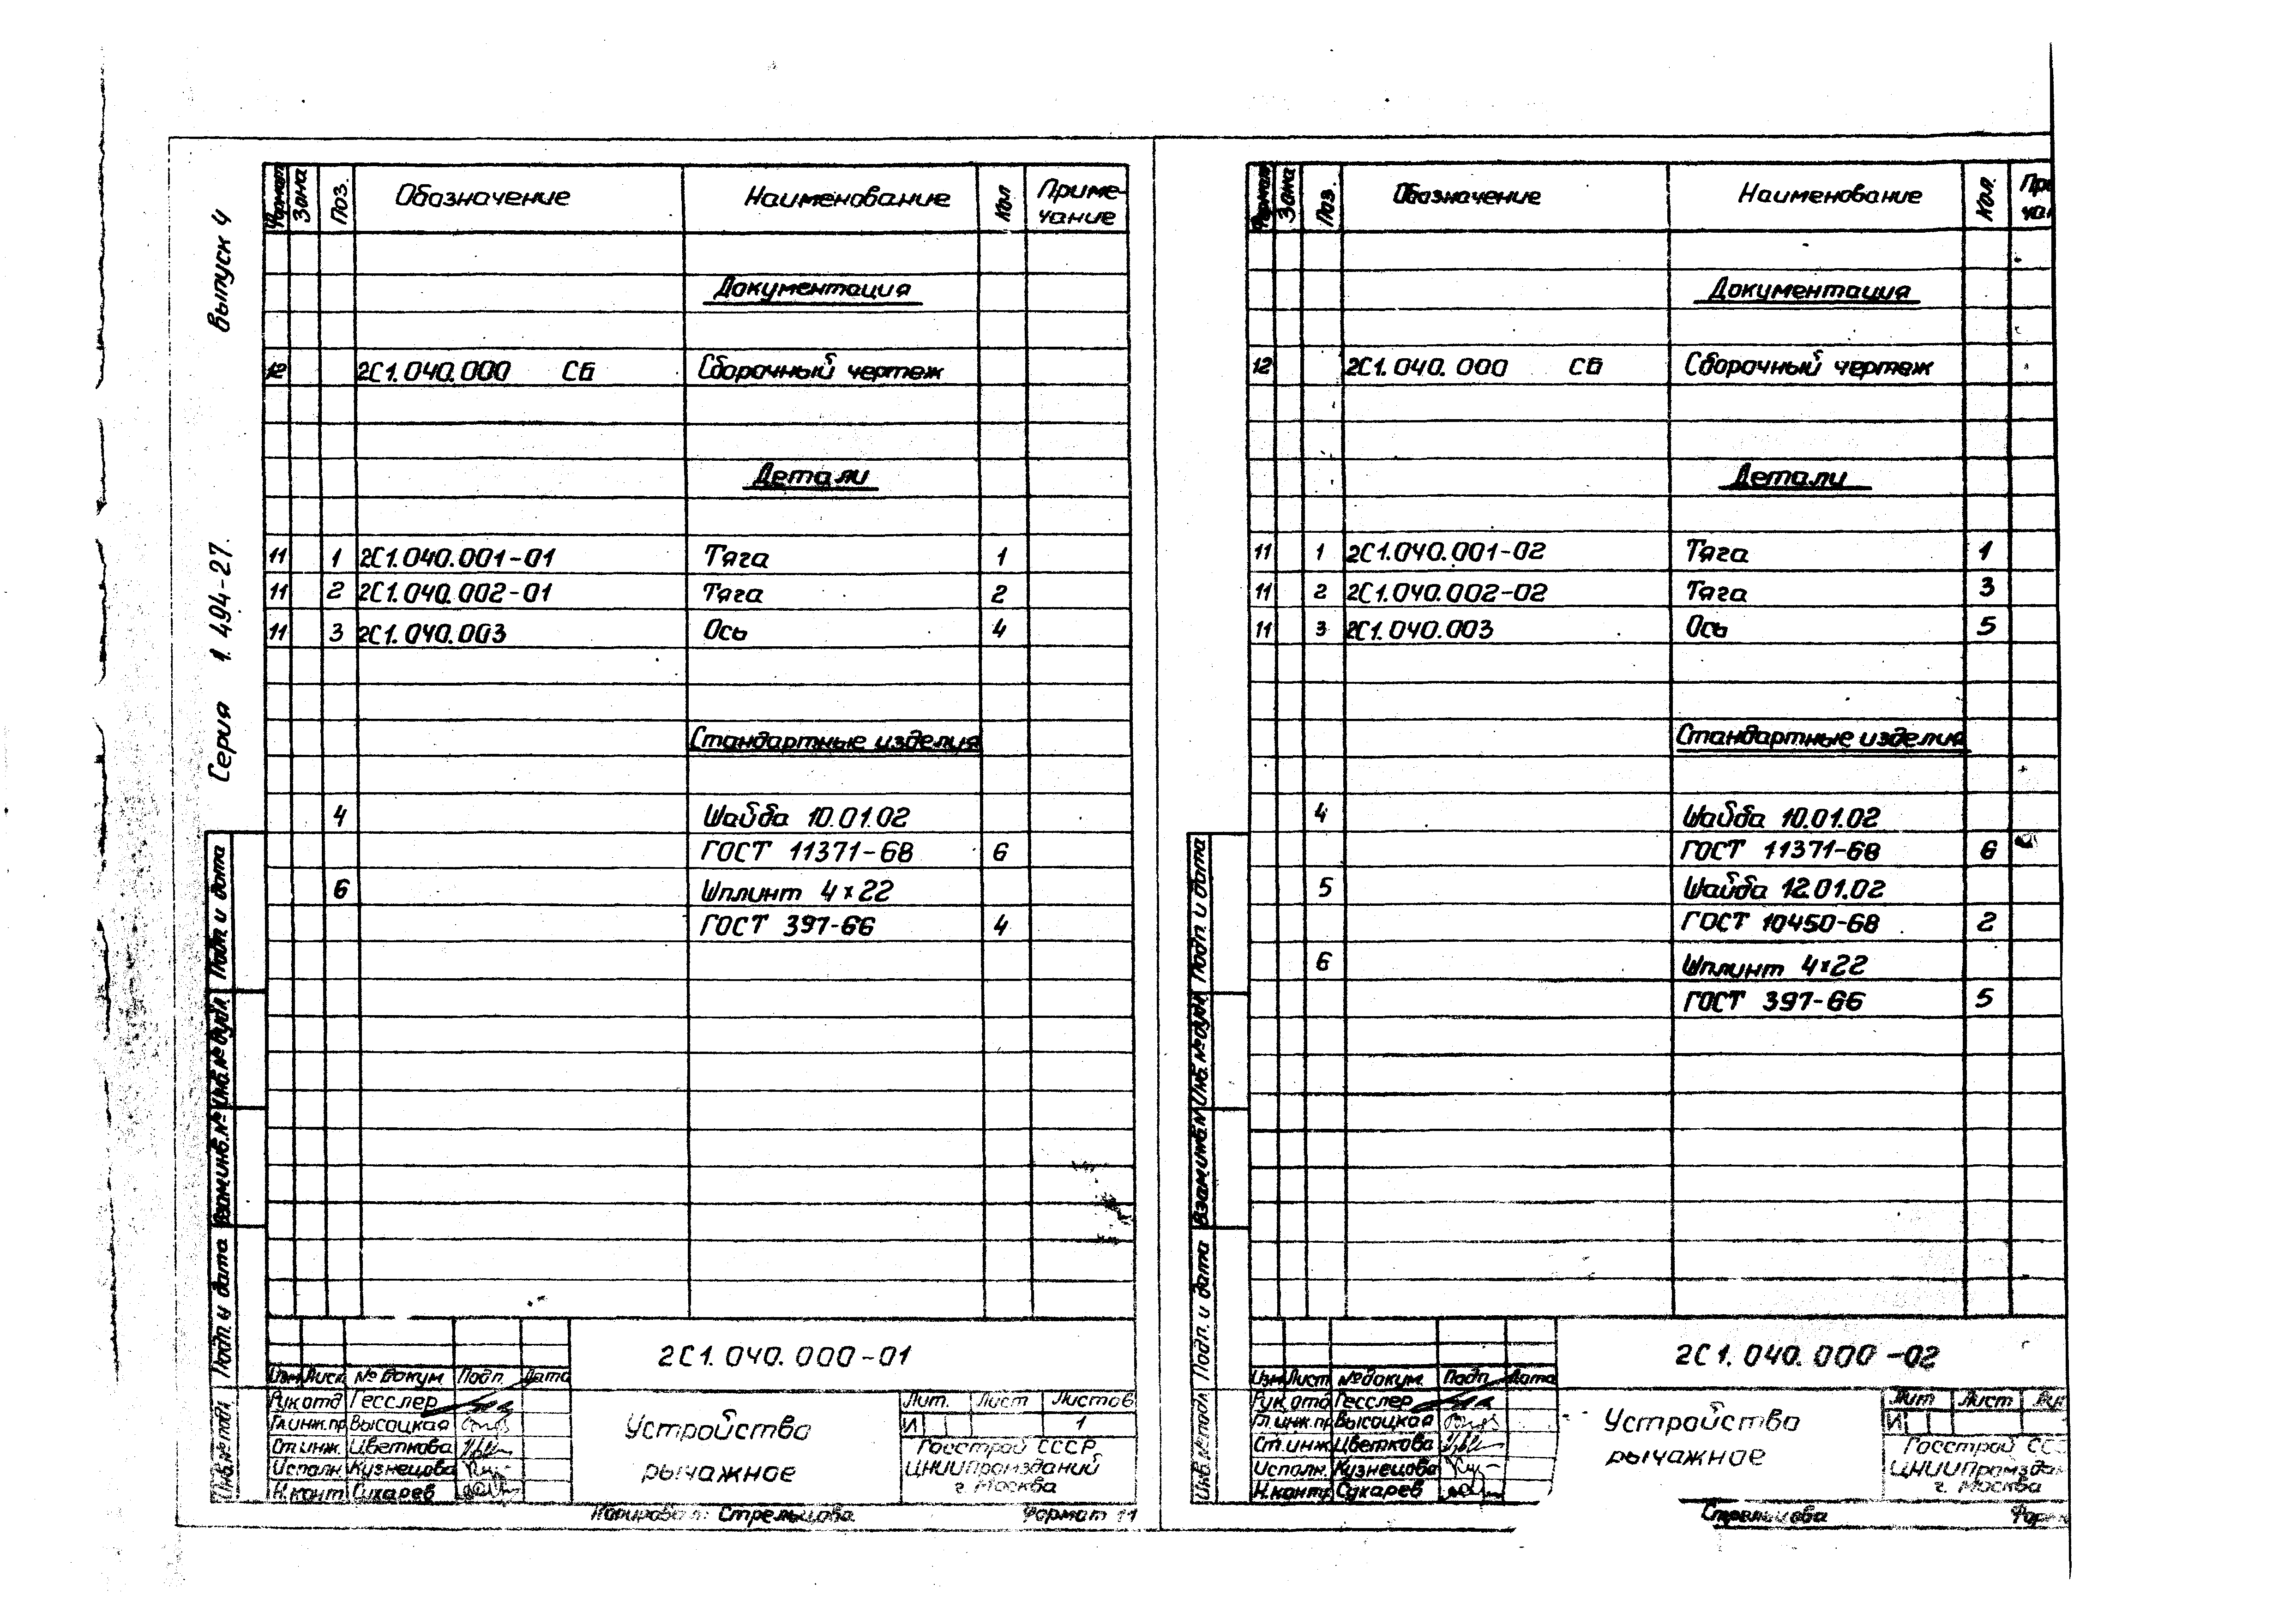 Серия 1.494-27. Выпуск 4
Формат Зона Поз. Обозначение Наименование Кол Приме-
чание
Документация
12 2С1.040.000 СБ Сборочный чертеж
Детали
11 1 2С1.040.001-01 Тяга 1
11 2 2С1.040.002-01 Тяга 2
11 3 2С1.040.003 Ось 4
Стандартные изделия
4 Шайба 10.01.02
ГОСТ 11371-68 6
6 Шплинт 4х22
ГОСТ 397-66 4
Подп. и дата
Инв.№ дубл
Взам.инв.№
Подп. и дата
Инв.№ подл
2С1.040.000-01
Изм Лист № докум Подп. Дата
Рук.отд Гесслер
Гл.инж.пр Высоцкая
Ст.инж. Цветкова
Исполн. Кузнецова
Н.конт Сухарев
Устройства
рычажное
Лит. Лист Листов
И 1
Госстрой СССР
ЦНИИПромзданий
г. Москва
Копировал: Стрельцова Формат 11
Формат Зона Поз. Обозначение Наименование Кол. При
чан
Документация
12 2С1.040.000 СБ Сборочный чертеж
Детали
11 1 2С1.040.001-02 Тяга 1
11 2 2С1.040.002-02 Тяга 3
11 3 2С1.040.003 Ось 5
Стандартные изделия
4 Шайба 10.01.02
ГОСТ 11371-68 6
5 Шайба 12.01.02
ГОСТ 10450-68 2
6 Шплинт 4х22
ГОСТ 397-66 5
Подп. и дата
Инв.№ дубл
Взам.инв.№
Подп. и дата
Инв.№ подл
2С1.040.000-02
Изм Лист № докум. Подп. Дата
Рук.отд Гесслер
Гл.инж.пр Высоцкая
Ст.инж Цветкова
Исполн. Кузнецова
Н.контр Сухарев
Устройства
рычажное
Лит Лист
И
Госстрой ССС
ЦНИИПромздан
г. Москва
Стрельцова Форм